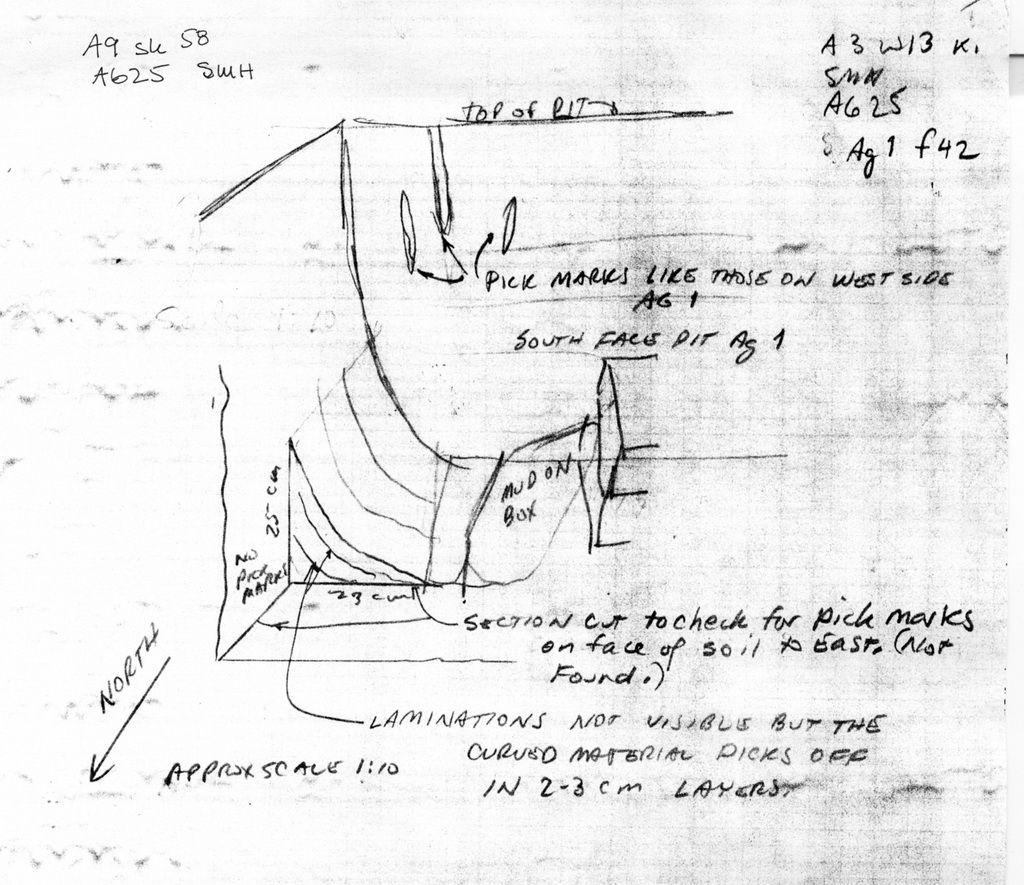 A9 sk 58
A625 SMH
A 3 W13 K.
SMH
A625
Ag 1 f42
TOP OF PIT
PICK MARKS LIKE THOSE ON WEST SIDE
AG 1
SOUTH FACE PIT Ag 1
MUD ON
BOX
25 cm
NO
PICK
MARKS
23 cm
SECTION CUT to check for pick marks
on face of soil to EAST. (Not
Found.)
NORTH
LAMINATIONS NOT VISIBLE BUT THE
CURVED MATERIAL PICKS OFF
IN 2-3 cm LAYERS.
APPROX SCALE 1:10